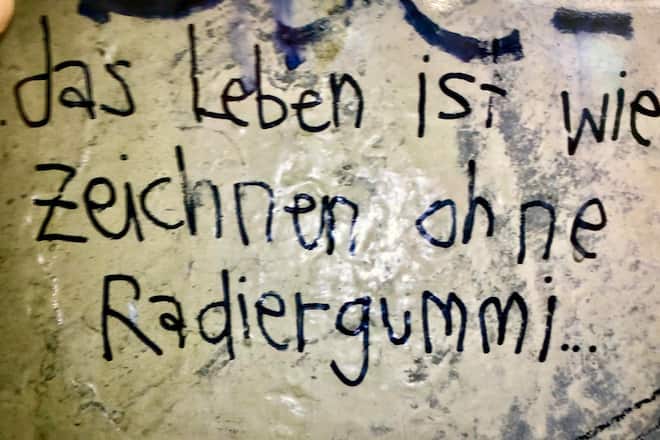 das Leben ist wie
zeichnen ohne
Radiergummi...